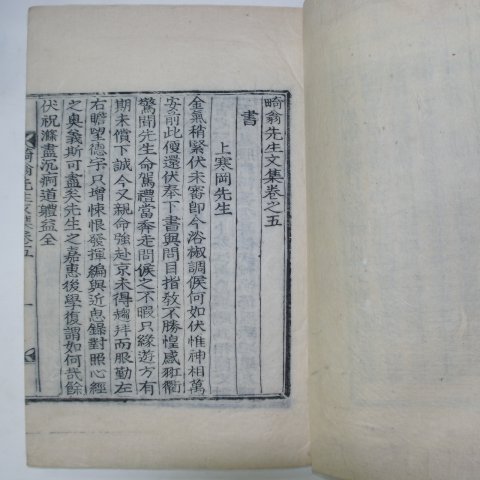 畸翁先生文集卷之五
書
上寒岡先生
金氣稍緊伏未審卽今浴椒調候何如伏惟神相萬
安前此便還伏奉下書與問目指敎不勝惶感瓧衢
驚聞先生命駕禮當奔走問候之不暇只緣遊方有
期未償下誠今又親命強赴京未得趨拜而服勤左
右瞻望德宇只增悚恨發揮編與近思錄對照心經
之奧義斯可盡矣先生之嘉惠後學復謂如何哉餘
伏祝滌盡沉痾道軆益全
畸翁先生文集卷五 一